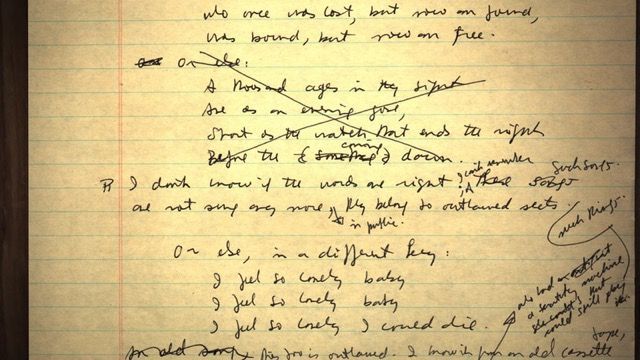 who once was lost, but now am found,
was bound, but now am free.
Or else:
A thousand ages in thy sight
Are as an evening gone,
Short as the watch that ends the night
Before the (coming) dawn.
I don't know if the words are right, I can't remember, A these songs Such songs
are not sung any more, they belong to outlawed sects.
in public
such things.
Or else, in a different key:
I feel so lonely baby
I feel so lonely baby
I feel so lonely I could die.
who had a
a machine
secretly that
could still play
An old song This too is outlawed. I know it from an old cassette
tape,